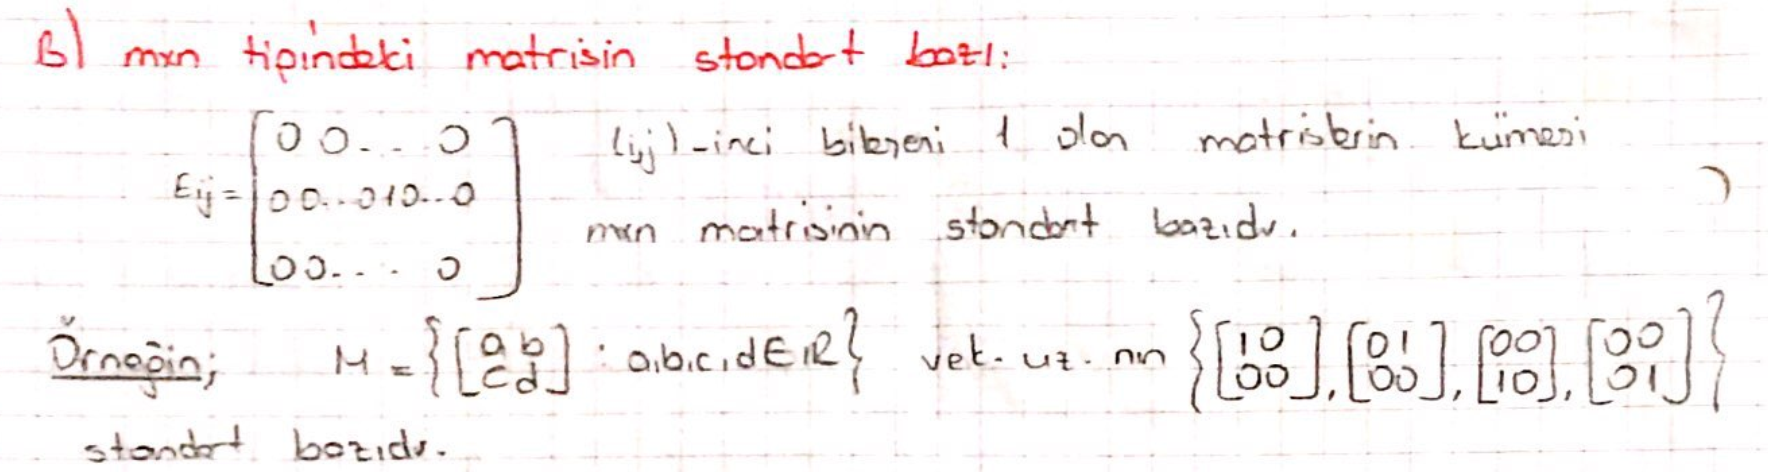 B) mxn tipindeki matrisin standart bazı:
Eij = [0 0 . . 0 / 0 0 . . 0 1 0 . . 0 / 0 0 . . . 0] (i,j)-inci bileşeni 1 olan matrislerin kümesi
mxn matrisinin standart bazıdır.
Örneğin; M = {[a b / c d] : a,b,c,d ∈ IR} vek. uz. nın {[1 0 / 0 0], [0 1 / 0 0], [0 0 / 1 0], [0 0 / 0 1]}
standart bazıdır.